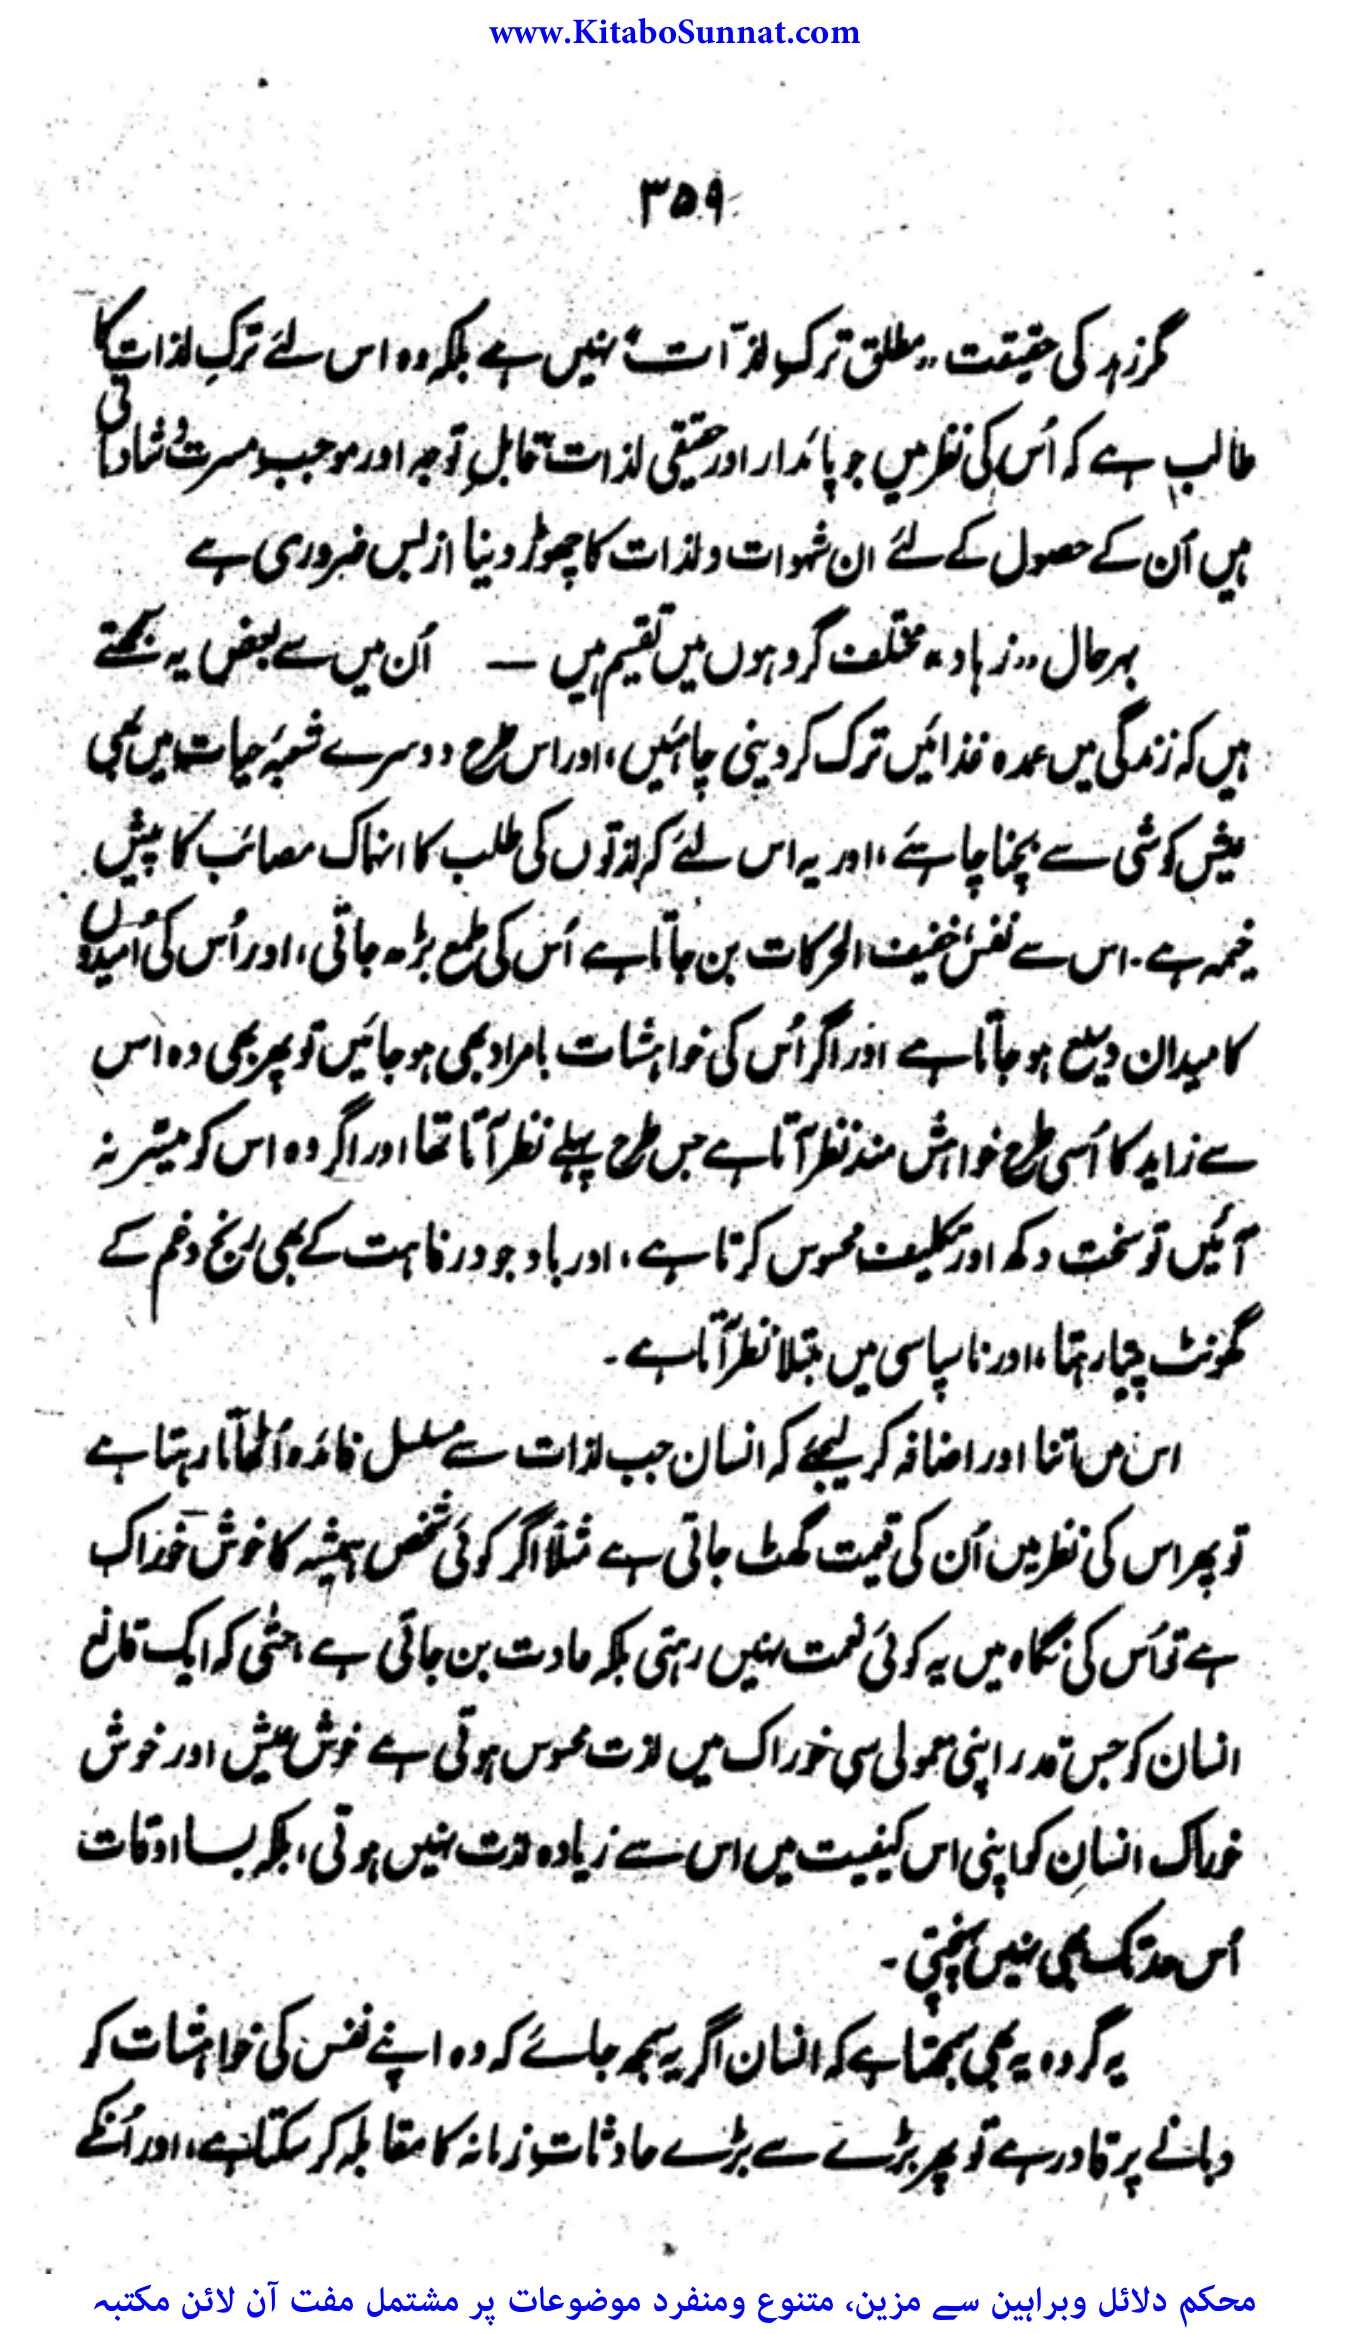 www.KitaboSunnat.com
۳۵۹
مگر زہد کی حقیقت ”مطلق ترکِ لذّات“ نہیں ہے بلکہ وہ اس لئے ترکِ لذات کا
طالب ہے کہ اُس کی نظر میں جو پائدار اور حقیقی لذات قابلِ توجہ اور موجب مسرت و شادمانی
ہیں اُن کے حصول کے لئے ان شہوات و لذات کا چھوڑ دینا از بس ضروری ہے
بہر حال ”زہاد“ مختلف گروہوں میں تقسیم ہیں — اُن میں سے بعض یہ کہتے
ہیں کہ زندگی میں عمدہ غذائیں ترک کر دینی چاہئیں، اور اس طرح دوسرے شعبۂ حیات میں بھی
عیش کوشی سے بچنا چاہئے، اور یہ اس لئے کہ لذتوں کی طلب کا انہماک مصائب کا پیش
خیمہ ہے۔ اس سے نفس خفیف الحرکات بن جاتا ہے اُس کی طمع بڑھ جاتی، اور اُس کی اُمیدوں
کا میدان وسیع ہو جاتا ہے اور اگر اُس کی خواہشات بامراد بھی ہو جائیں تو پھر بھی وہ اس
سے زاید کا اُسی طرح خواہش مند نظر آتا ہے جس طرح پہلے نظر آتا تھا اور اگر وہ اس کو میسّر نہ
آئیں تو سخت دکھ اور تکلیف محسوس کرتا ہے، اور باوجود رفاہت کے بھی رنج و غم کے
گھونٹ پیتا رہتا، اور ناسپاسی میں مبتلا نظر آتا ہے۔
اس میں اتنا اور اضافہ کر لیجئے کہ انسان جب لذات سے مسلسل فائدہ اُٹھاتا رہتا ہے
تو پھر اس کی نظر میں اُن کی قیمت گھٹ جاتی ہے مثلاً اگر کوئی شخص ہمیشہ کا خوش خوراک
ہے تو اُس کی نگاہ میں یہ کوئی نعمت نہیں رہتی بلکہ عادت بن جاتی ہے، حتّٰی کہ ایک قانع
انسان کو جس قدر اپنی معمولی سی خوراک میں لذت محسوس ہوتی ہے خوش عیش اور خوش
خوراک انسان کو اپنی اس کیفیت میں اس سے زیادہ لذت نہیں ہوتی، بلکہ بسا اوقات
اُس حد تک بھی نہیں پہنچتی۔
یہ گروہ یہ بھی سمجھتا ہے کہ انسان اگر یہ سمجھ جائے کہ وہ اپنے نفس کی خواہشات کو
دبانے پر قادر ہے تو پھر بڑے سے بڑے حادثاتِ زمانہ کا مقابلہ کر سکتا ہے، اور اُنکے
محکم دلائل وبراہین سے مزین، متنوع ومنفرد موضوعات پر مشتمل مفت آن لائن مکتبہ